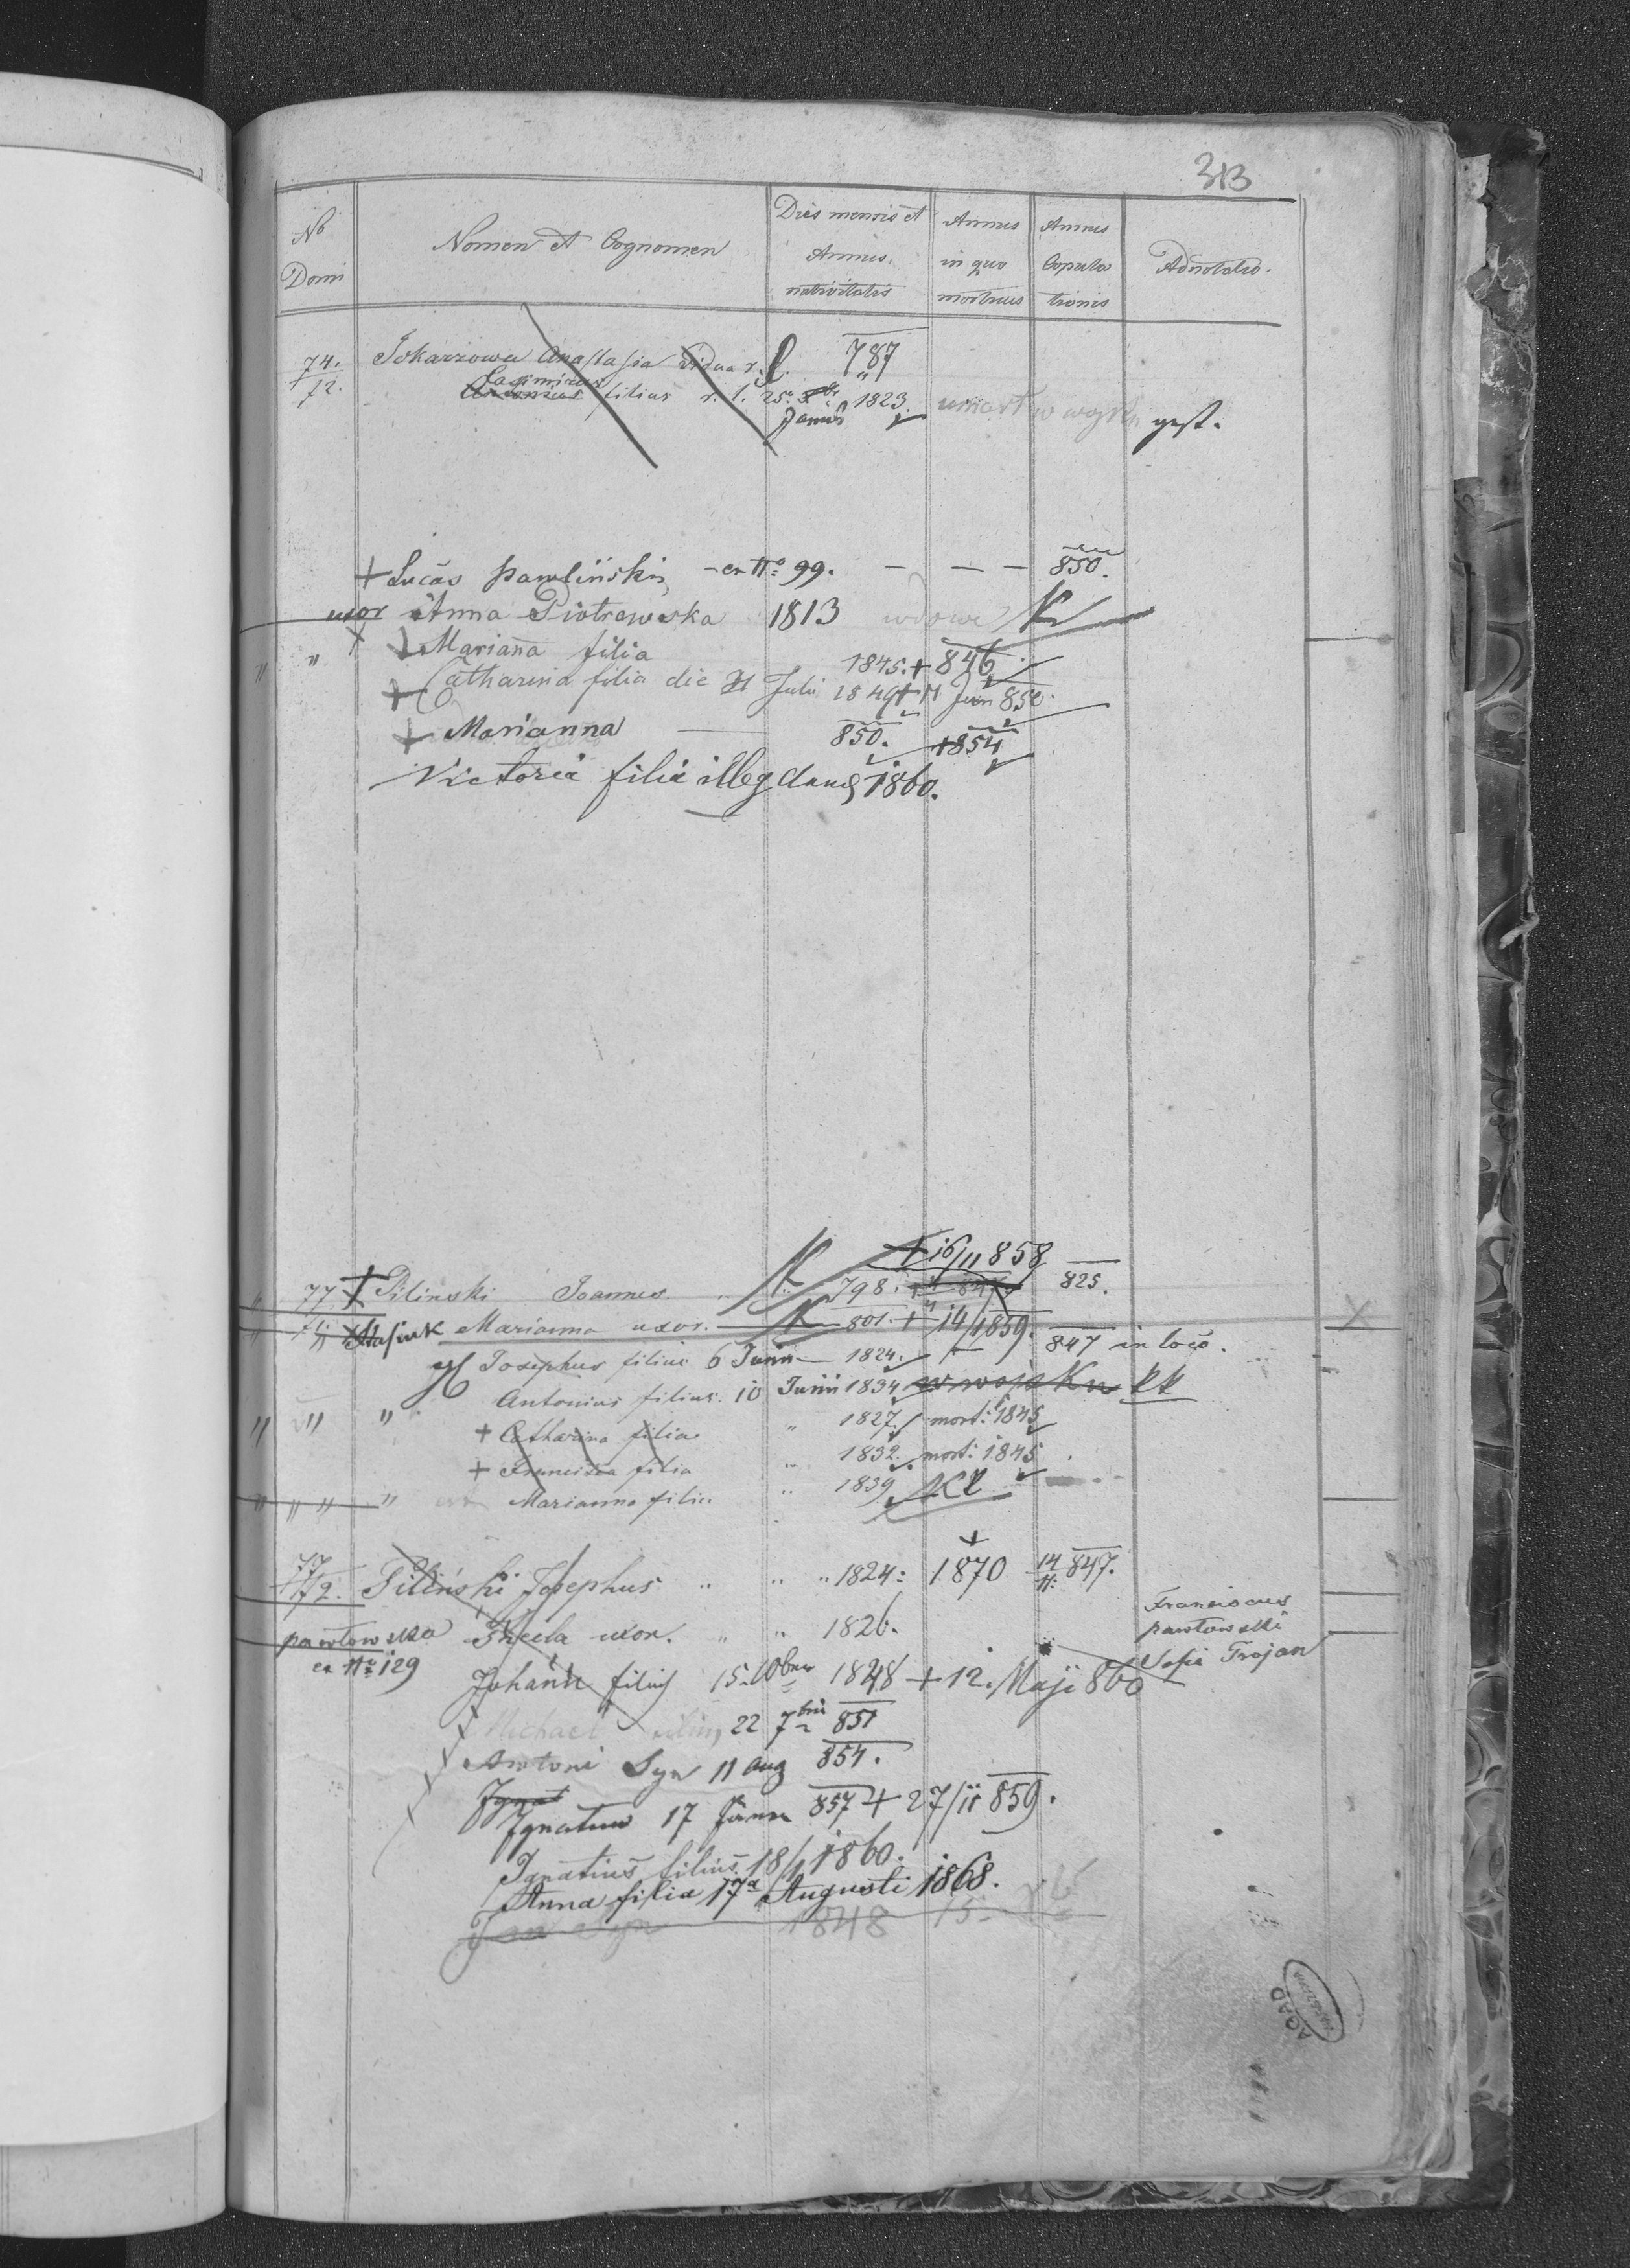 313
No Domi
Nomen et Cognomen
Dies mensis et Annus nativitatis
Annus in quo mortuus
Annus Copulationis
Adnotatio.
74./72. Tokarzowa Anastasia vidua r. l. 787
Casimirus
Antonius filius r. l. 25. 1823. umarł w wojsku gest.
Janua
+ Lucas Pawliński ex No 99. — — — 850.
uxor Anna Piotrowska 1813 wdowa K
" " Marianna filia 1845. + 846
+ Catharina filia die 21 Juli 1849 + 11 Jun 850.
+ Marianna — 850. +854
Victoria filia illeg 1860.
+ 16/11 858
77 + Pilinski Joannes " 798. + 847 825.
Stasiuk Marianna uxor. 801. + 14/1 859.
Josephus filius 6 Junii — 1824. — 847 in loco.
Antonius filius. 10 Junii 1834 w wojsku kk
" " " + Catharina filia " 1827 mort: 1845
+ Francisca filia " 1832. mort: 1845
" " " " Marianna filia " 1839
77/72. Piliński Josephus " " " 1824: + 1870 14/11: 847.
pawłowska Thecla uxor. " " 1826.
Franciscus pawłowski
Sofia Trojan
ex No 129
Johann filius 15. 10bris 1848 + 12. Maji 860
Michael filius 22 7bris 851
Antoni Syn 11 Aug 854.
Ignat
Ignatius 17 Janua 857 + 27/11 859.
Ignatius filius 18/1 1860.
Anna filia 17a Augusti 1868.
Jan syn 1848 15.
AGAD